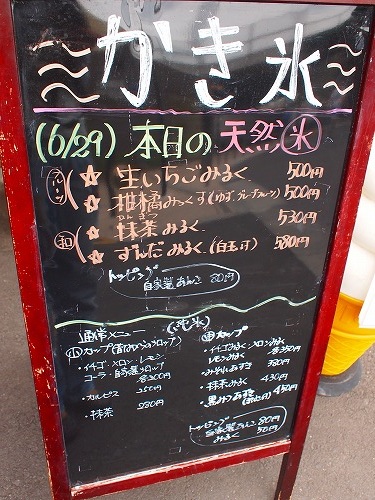 かき氷
(6/29) 本日の天然氷
フルーツ
☆ 生いちごみるく 500円
☆ 柑橘みっくす(ゆず、グレープフルーツ) 500円
和
☆ 抹茶みるく 530円
☆ ずんだみるく(白玉付) 580円
トッピング
自家製あんこ 80円
通常メニュー (純氷)
小カップ
・イチゴ・メロン・レモン
コーラ・自家製シロップ
各200円
・カルピス 250円
・抹茶 280円
中カップ
・イチゴみるく メロンみるく
レモンみるく 各350円
・みぞれあずき 380円
・抹茶みるく 430円
・黒みつあずき 450円
トッピング
自家製あんこ 80円
みるく 50円